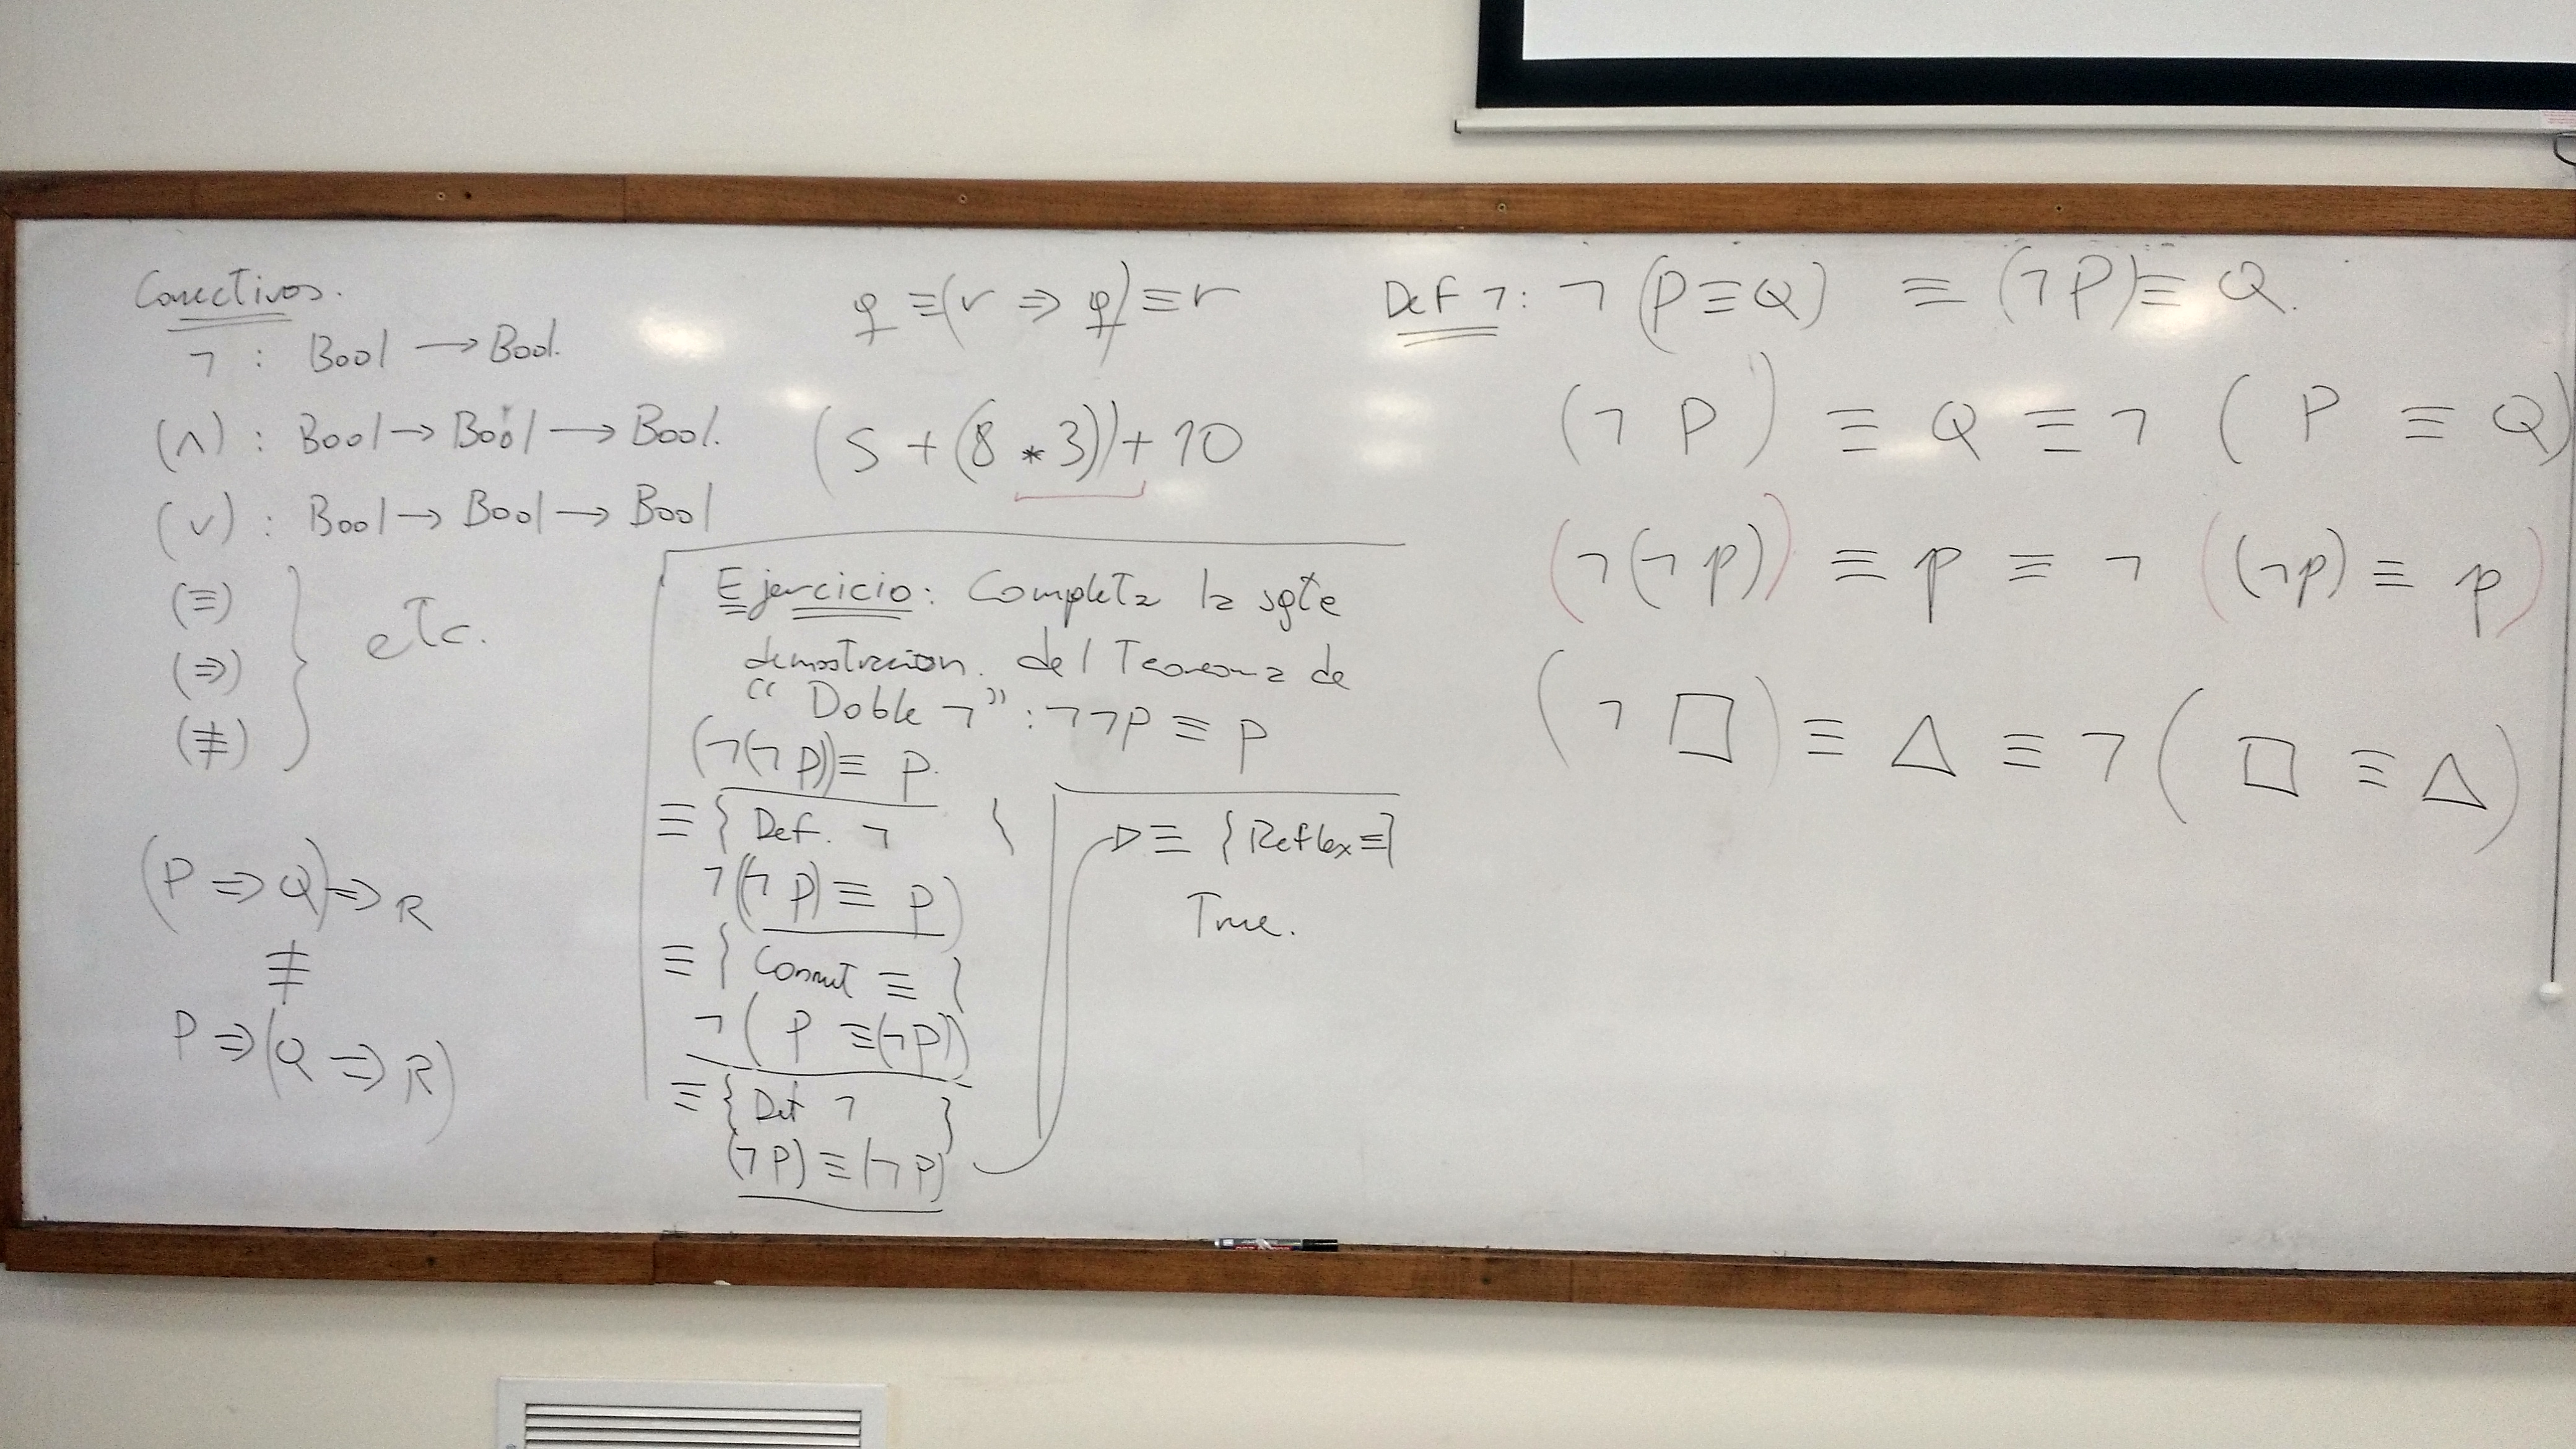 Conectivos.
¬ : Bool → Bool.
(∧) : Bool → Bool → Bool.
(∨) : Bool → Bool → Bool
(≡)
(⇒)
(≢)
etc.
(P ⇒ Q) ⇒ R
≢
P ⇒ (Q ⇒ R)
q ≡ (r ⇒ q) ≡ r
(5 + (8 * 3)) + 10
Ejercicio: Completa la sgte
demostracion. del Teorema de
“Doble ¬” : ¬¬p ≡ p
(¬(¬p)) ≡ p.
≡ { Def. ¬ }
¬((¬p) ≡ p)
≡ { Conmut ≡ }
¬(p ≡ (¬p))
≡ { Def ¬ }
(¬p) ≡ (¬p)
≡ { Reflex ≡ }
True.
Def ¬ : ¬(P ≡ Q) ≡ (¬P) ≡ Q.
(¬ P) ≡ Q ≡ ¬ (P ≡ Q)
(¬(¬p)) ≡ p ≡ ¬ ((¬p) ≡ p)
(¬ □) ≡ △ ≡ ¬ (□ ≡ △)